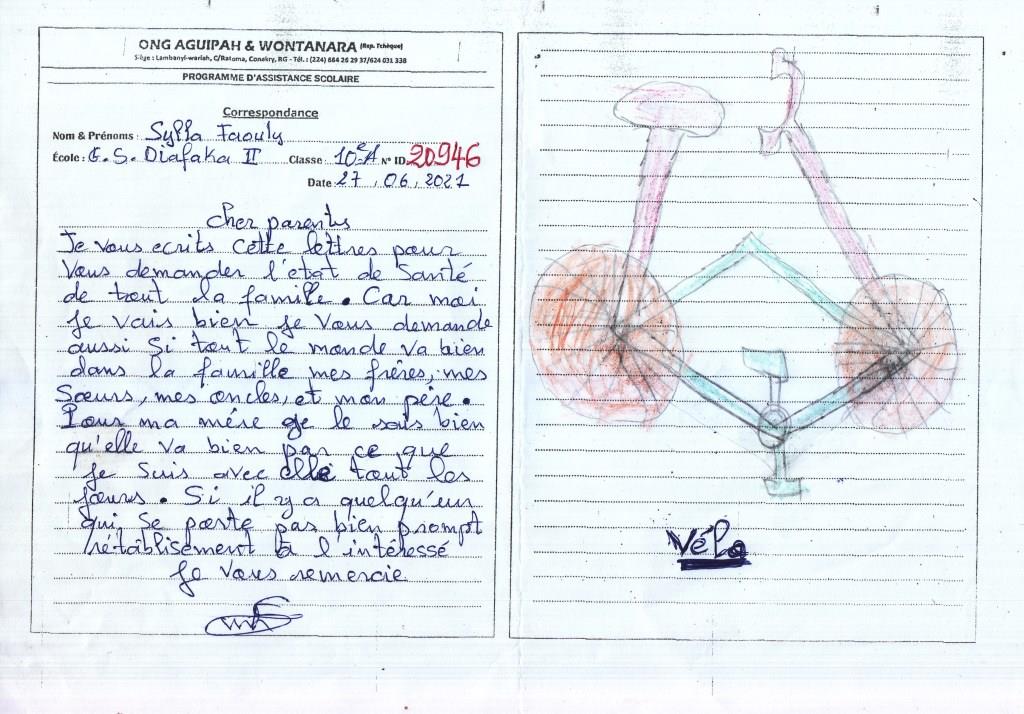 ONG AGUIPAH & WONTANARA (Rep. Tchèque)
Siège : Lambanyi-wariah, C/Ratoma, Conakry, RG - Tél. : (224) 664 26 29 37/624 031 338
PROGRAMME D'ASSISTANCE SCOLAIRE
Correspondance
Nom & Prénoms : Sylla Faouly
École : G. S. Diafaka II Classe : 10e A N° ID 20946
Date : 27, 06, 2021
Cher parents
Je vous ecrits cette lettres pour
vous demander l'etat de santé
de tout la famille. Car moi
je vais bien je vous demande
aussi si tout le monde va bien
dans la famille mes frères, mes
Sœurs, mes oncles, et mon père.
Pour ma mère je le sais bien
qu'elle va bien par ce que
je suis avec elle tout les
jours. Si il y a quelqu'un
qui se porte pas bien prompt
rétablisement à l'intéressé
Je vous remercie
Vélo